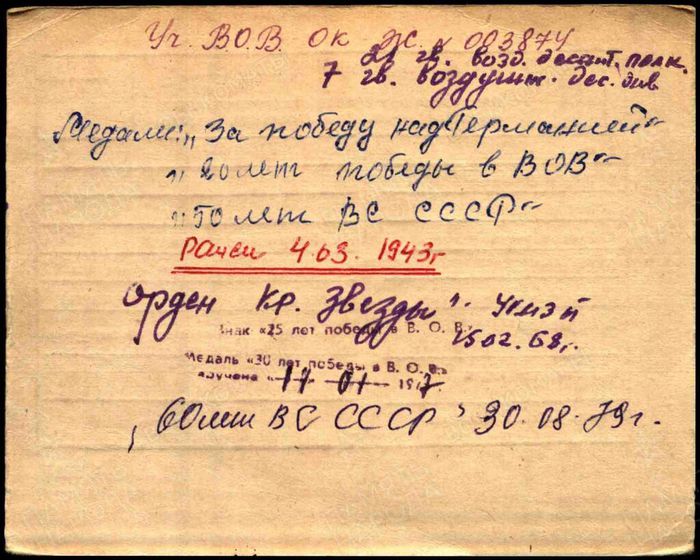 Уч. В.О.В. ок Ж. № 003874
21 гв. возд. десант. полк.
7 гв. воздушн. дес. див
Медали: "За победу над Германией"
"20 лет победы в ВОВ"
"50 лет ВС СССР"
Ранен 4.03. 1943г
Орден Кр. Звезды".
15.02.68г.
Знак «25 лет победы в В. О. В.»
Медаль «30 лет победы в В. О. В.»
вручена « 11 - 01 - 1977
"60 лет ВС СССР" 30.08.79г.